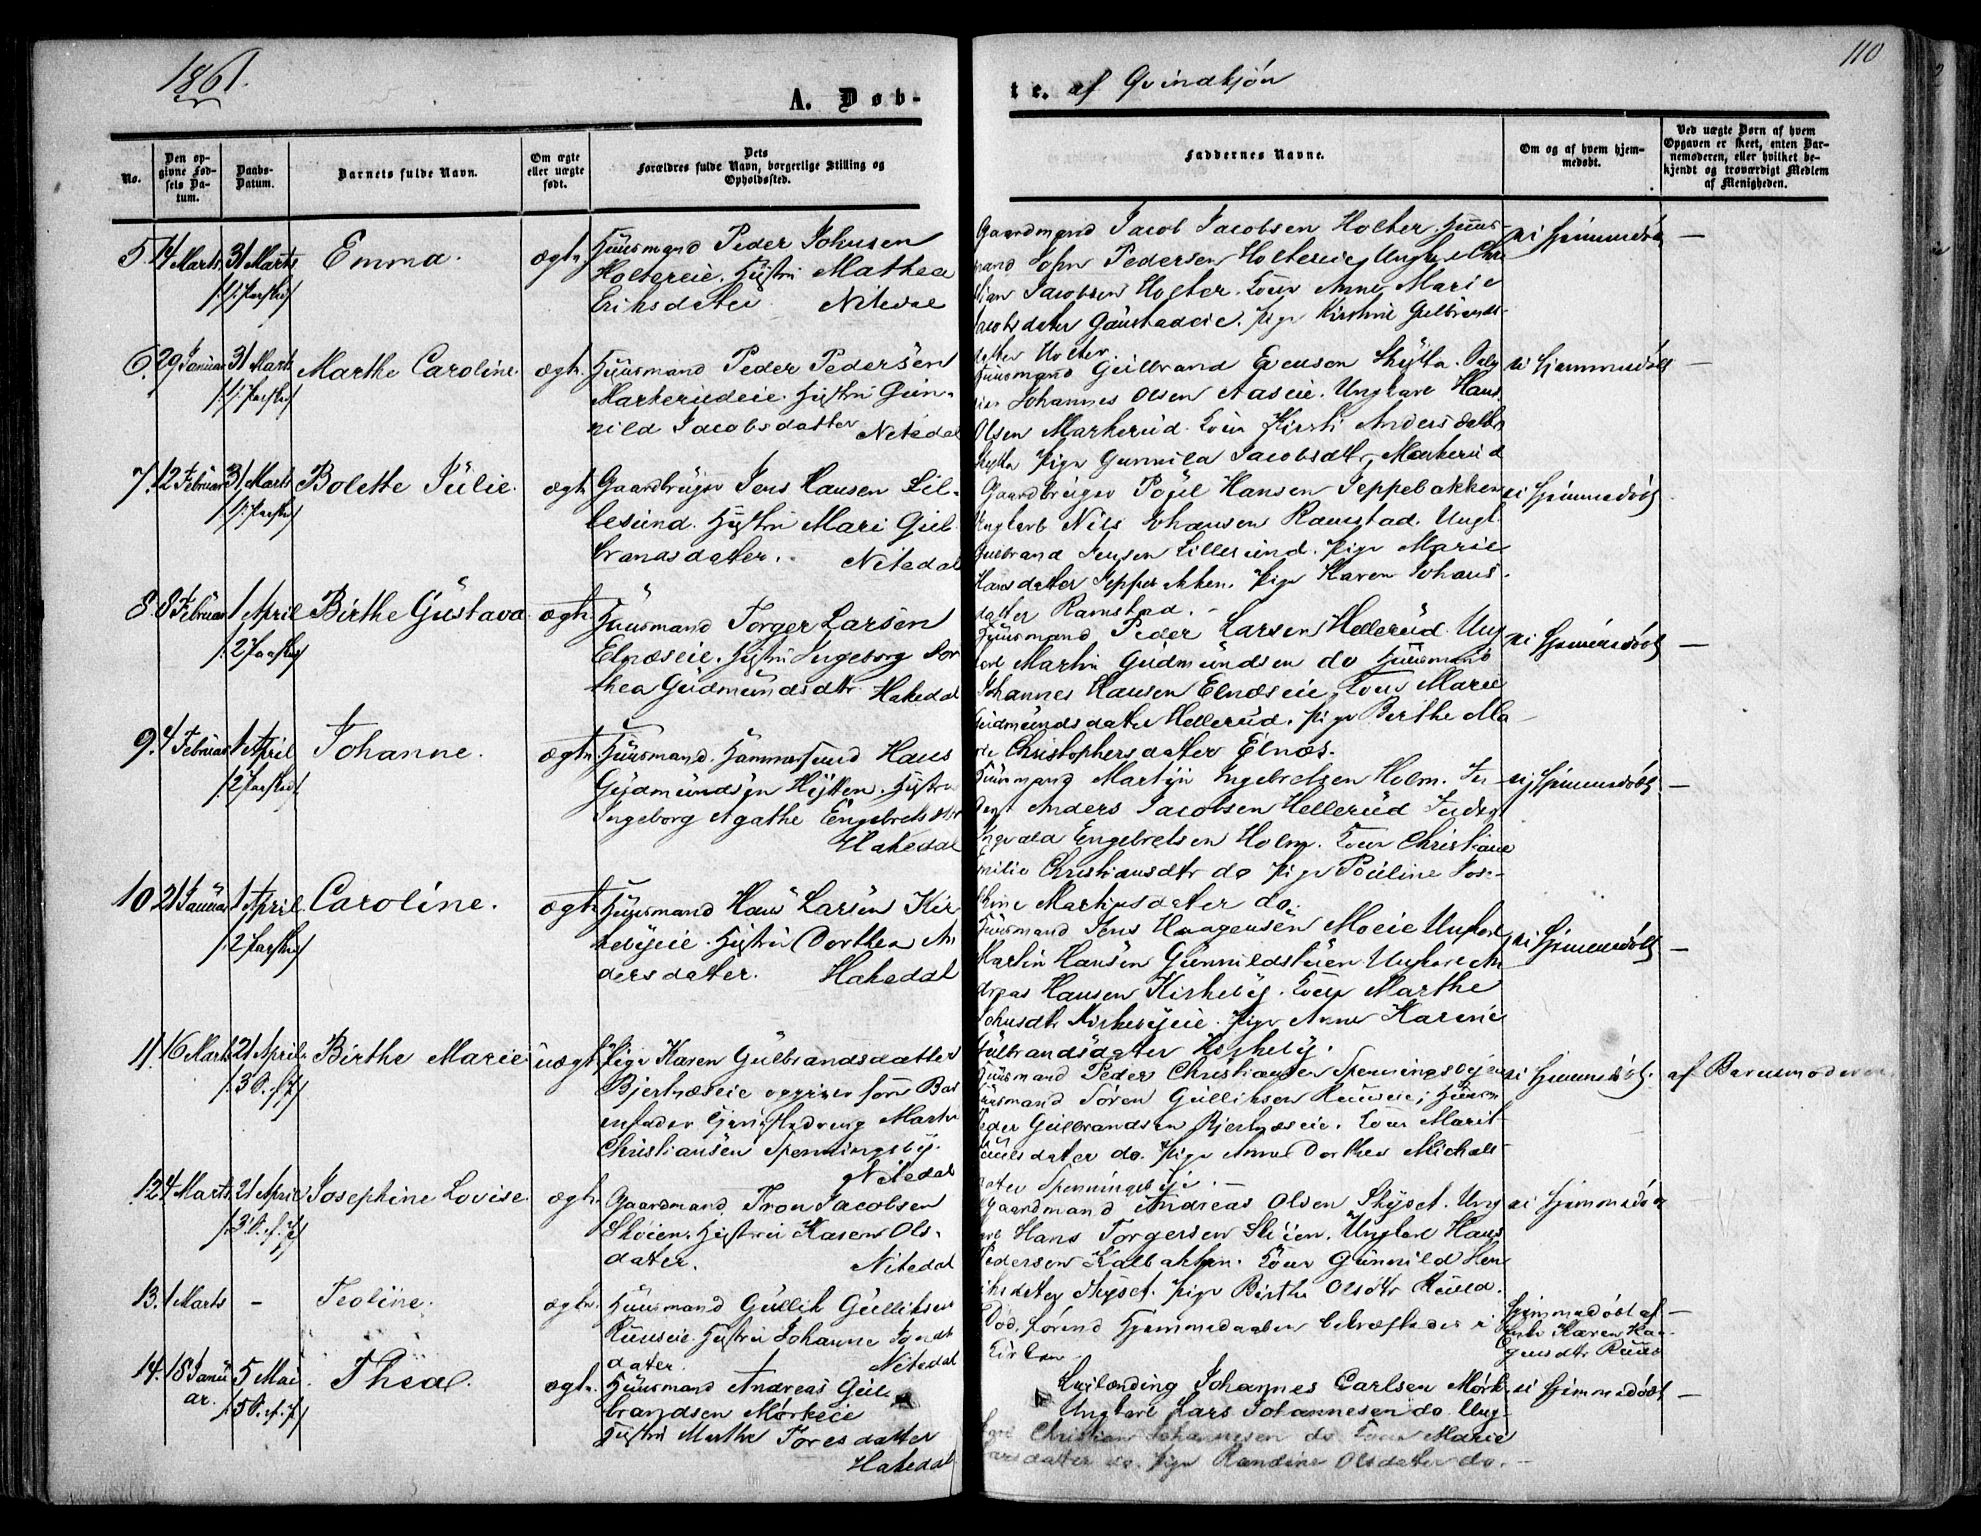 1861.
110
A. Døb-
te. af Qvindkjøn
No.
Den op-
givne Fød-
sels Da-
tum.
Daabs-
Datum.
Barnets fulde Navn.
Om ægte
eller uægte
født.
Dets
Forældres fulde Navn, borgerlige Stilling og
Opholdssted.
Faddernes Navne.
Om og af hvem hjem-
medøbt.
Ved uægte Børn af hvem
Opgaven er skeet, enten Bar-
nemoderen, eller hvilket be-
kjendt og troværdigt Medlem
af Menigheden.
5. 14 Marts 31 Marts Emma. ægte
Huusmand Peder Johnsen
Holtereie. Hustru Mathea
Eriksdatter. Nitedal
Gaardmand Jacob Jacobsen Holter. Huus-
mand John Pedersen Holtereie, Ungkarl Chri
stian Jacobsen Holter. Kone Anne Marie
Jacobsdatter Gaustadeie. Pige Kirstine Gulbrands-
datter Holter.
ei Hjemmedøbt —
6. 29 Januar 31 Marts Marthe Caroline. ægte.
Huusmand Peder Pedersen
Markerudeie. Hustru Gun-
nild Jacobsdatter Nitedal
Huusmand Gulbrand Evensen Skytta.
Johannes Olsen Aaseie. Ungkarl Hans
Olsen Markerud. Kone Kirsti Andersdatter
Skytta Pige Gunnild Jacobsdtr Markerud
ei Hjemmedøbt —
7. 12 Februar 31 Marts Bolette Julie. ægte
Gaardbruger Jens Hansen Lil-
lesund. Hustru Mari Gul-
brandsdatter. Nitedal
Gaardbruger Poul Hansen Jeppebakken
Ungkarl Nils Johansen Ramstad. Ungk.
Gulbrand Jensen Lillesund. Pige Marie
Hansdatter Jeppebakken. Pige Karen Johans-
datter Ramstad.
ei Hjemmedøbt
8. 8 Februar 1 April Birthe Gustava. ægte.
Huusmand Torger Larsen
Elnæseie. Hustru Ingeborg Dor
thea Gudmundsdtr Hakedal
Huusmand Peder Larsen Hellerud. Ung
karl Martin Gudmundsen do Huusmand
Johannes Hansen Elnæseie, Kone Marie
Gudmundsdatter Hellerud. Pige Berthe Ma-
rie Christophersdatter Elnæs.
ei Hjemmedøbt —
9. 4 Februar 1 April Johanne. ægte
Huusmand. Hammersmed Hans
Gudmundsen Hytten. Hustru
Ingeborg Agathe Engebretsdtr
Hakedal
Huusmand Martin Ingebretsen Holm. In-
derst Anders Jacobsen Hellerud Inderst
Ingvald Engebretsen Holm. Kone Christiane
Emilie Christiansdtr do Pige Pouline Jose-
phine Martinsdatter do.
ej Hjemmedøbt —
10. 21 Januar 1 April Caroline. ægte
Huusmand Hans Larsen Kir
kebyeie. Hustru Dorthea An
dersdatter. Hakedal
Huusmand Jens Haagensen Moeie Ungkarl
Martin Hansen Gunnildstuen Ungkarl An
dreas Hansen Kirkeby. Kone Marthe
Johnsdtr Kirkebyeie. Pige Anne Karine
Gulbrandsdatter Kirkeby.
ei Hjemmedøbt —
11. 16 Marts 21 April Birthe Marie uægte
Pige Karen Gulbrandsdatter
Bjertnæseie opgiver som Bar
nefader Tjenestedreng Martin
Christiansen Spenningsby.
Nitedal
Huusmand Peder Christiansen Spenningsbyeie
Huusmand Søren Gulliksen Ruuseie; Huusm
Peder Gulbrandsen Bjertnæseie. Kone Marit
Poulsdatter do. Pige Anne Dorthea Michels-
datter Spenningsbyei.
ei Hjemmedøbt. af Barnemoderen
12. 4 Marts 21 April Josephine Lovise. ægte.
Gaardmand Tron Jacobsen
Skøien. Hustru Karen Ols-
datter. Nitedal
Gaardmand Andreas Olsen Skyset. Ung
karl Hans Torgersen Skøien. Ungkarl Hans
Pedersen Kalbakken. Kone Gunnild Hen
riksdatter Skyset. Pige Birthe Olsdtr Ruud.
ei Hjemmedøbt
13. 1 Marts - Teoline. ægte.
Huusmand Gullik Gulliksen
Ruuseie. Hustru Johanne
datter. Nitedal
Død, førend Hjemmedaaben bekræftedes i
Kirken
Hjemmedøbt af —
Karen Haa-
gensdtr Ruud
14. 18 Janu 5 Mai. Thea. ægte.
ar.
Huusmand Andreas Gul
brandsen Mørkeie
Hustru Marthe Toresdatter
Hakedal
Johannes Carlsen Mørk
Ungkarl Lars Johannesen do. Ung-
karl Christian Johannesen do. Kone Marie
Larsdatter do. Pige Randine Olsdatter do.
ei Hjemmedøbt —